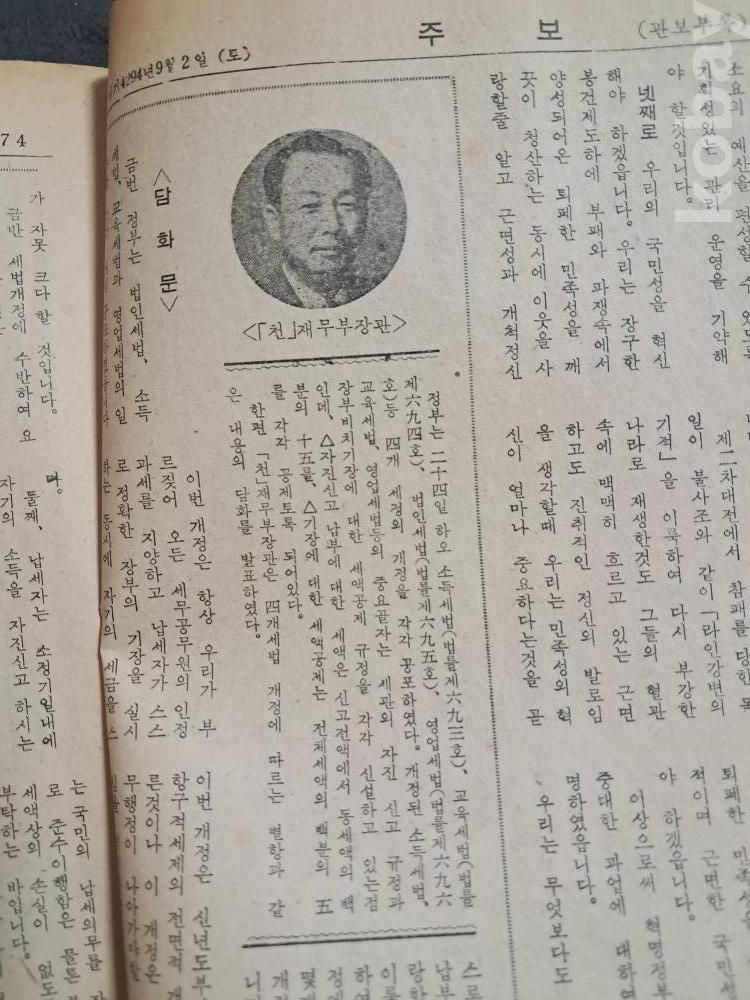 4294年9월 2일 (토)
주 보
(관보부록)
소요의 예산을 편성할 수 있도록
기획성있는 관리 운영을 기약해
야 할것입니다.
넷째로 우리의 국민성을 혁신
해야 하겠읍니다. 우리는 장구한
봉건제도하에 부패와 파쟁속에서
양성되어온 퇴폐한 민족성을 깨
끗이 청산하는 동시에 이웃을 사
랑할줄 알고 근면성과 개척정신
제二차대전에서 참패를 당한 독
일이 불사조와 같이 「라인강변의
기적」을 이룩하여 다시 부강한
나라로 재생한것도 그들의 혈관
속에 맥맥히 흐르고 있는 근면
하고도 진취적인 정신의 발로임
을 생각할때 우리는 민족성의 혁
신이 얼마나 중요하다는것을 곧
퇴폐한 민족성을
적이며 근면한 국민성
야 하겠읍니다.
이상으로써 혁명정부
중대한 과업에 대하여
명하였읍니다.
우리는 무엇보다도
<「천」재무부장관>
정부는 二十四일 하오 소득세법(법률제六九三호), 교육세법(법률
제六九四호), 법인세법(법률제六九五호), 영업세법(법률제六九六
호)등 四개 세정의 개정을 각각 공포하였다. 개정된 소득세법,
교육세법, 영업세법등의 중요골자는 세관의 자진 신고 규정과
장부비치기장에 대한 세액공제 규정을 각각 신설하고 있는점
인데, △자진신고 납부에 대한 세액은 신고전액에서 동세액의 백
분의 十五를, △기장에 대한 세액공제는 전체세액의 백분의 五
를 각각 공제토록 되어있다.
한편 「천」재무부장관은 四개세법 개정에 따르는 별항과 같
은 내용의 담화를 발표하였다.
<담화문>
금번 정부는 법인세법, 소득
세법, 교육세법과 영업세법의 일
이번 개정은 항상 우리가 부
르짖어 오든 세무공무원의 인정
과세를 지양하고 납세자가 스스
로 정확한 장부의 기장을 실시
하는 동시에 자기의 세금을 스
스로
납부
이번 개정은 신년도부
항구적세제의 전면적 개
른것이나 이 개정은
무행정이 나아가야할
74
가 자못 크다 할 것입니다.
금반 세법개정에 수반하여 요
다.
둘째, 납세자는 소정기일내에
자기의 소득을 자진신고 하시는
는 국민의 납세의무를
로 준수이행함은 물론
세액상의 손실이 없도
부탁하는 바입니다.